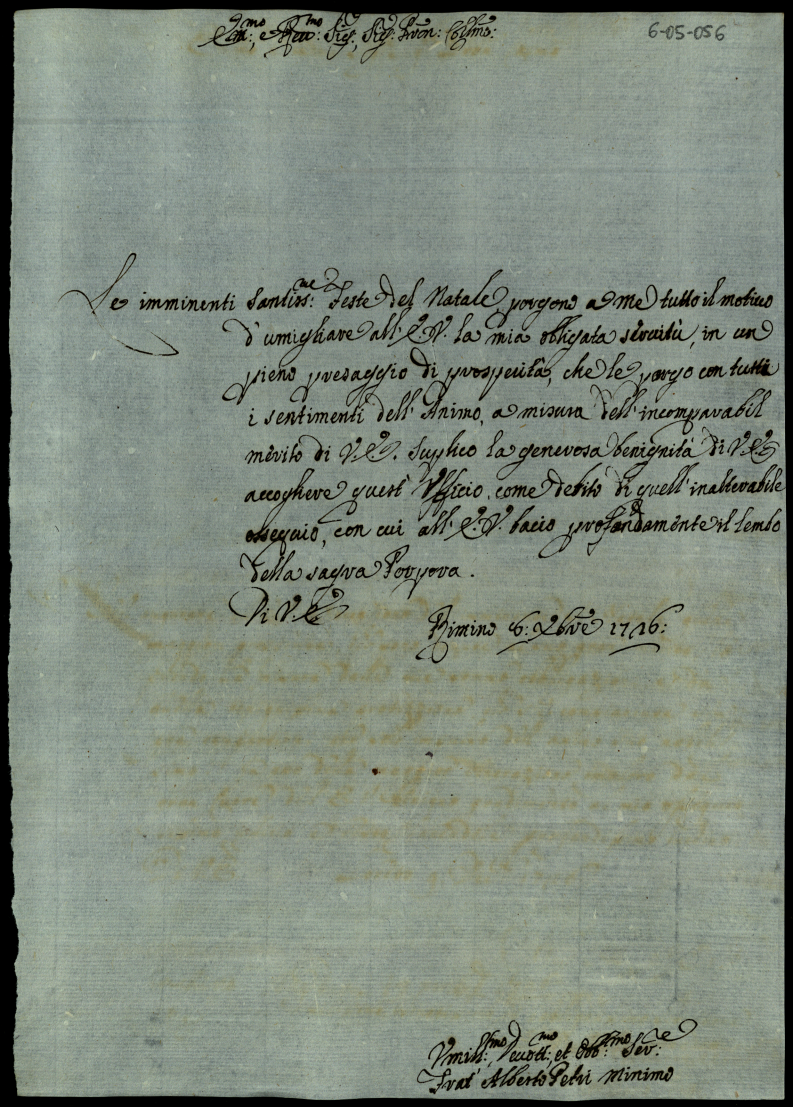 6-05-056
Em:mo, e Rev:mo Sig:, Sig: Pron: Col:mo:
Le imminenti Santiss:me Feste del Natale porgono a me tutto il motivo
d'umigliare all' E.V. la mia obligata servitù, in un
pieno presaggio di prosperità, che le porgo con tutti
i sentimenti dell' Animo, a misura dell' incomparabil
merito di V.E. Suplico la generosa benignità di V.E.
accogliere quest' Ufficio, come debito di quell' inalterabile
ossequio, con cui all' E.V. bacio profondamente il lembo
della sagra Porpora.
Di V.E.
Rimino 6: Xbre 1716:
Umill:mo, Devott:mo, et Obb:mo Ser:re
Frat' Alberto Petri Minimo